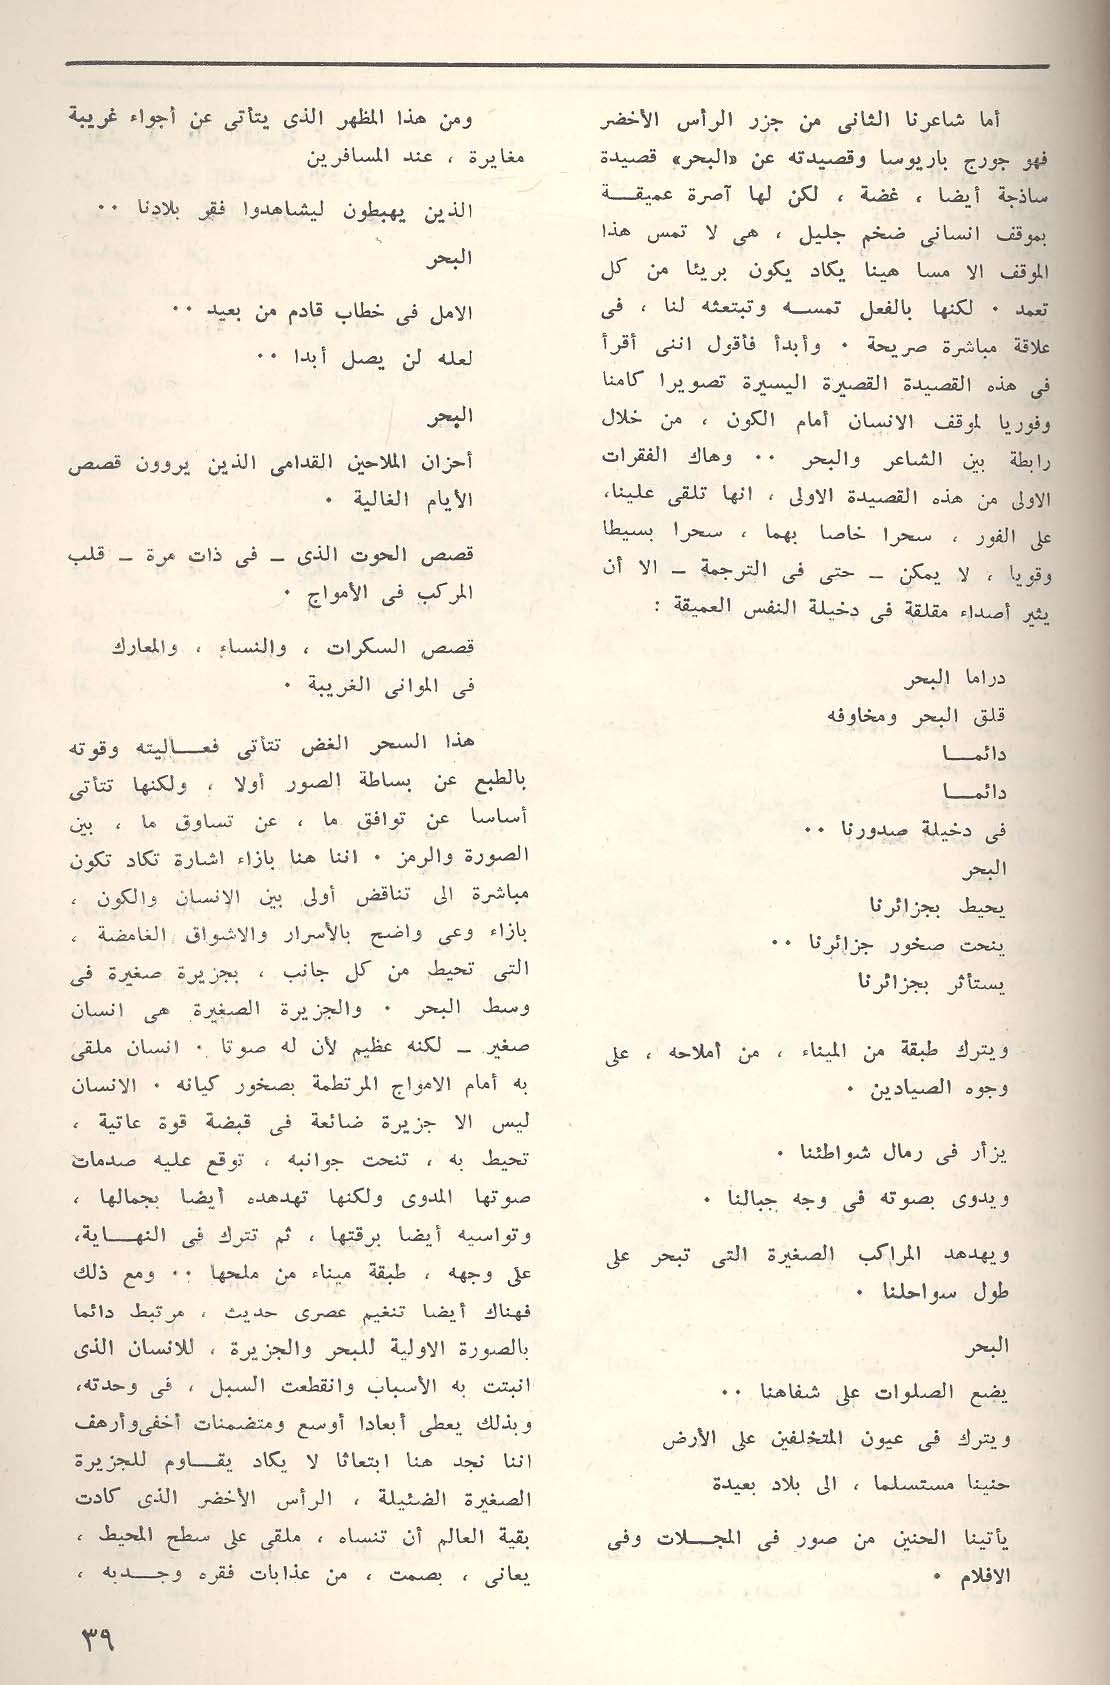 أما شاعرنا الثانى من جزر الرأس الأخضر
فهو جورج باربوسا وقصيدته عن «البحر» قصيدة
ساذجة أيضا ، غضة ، لكن لها آصرة عميقــة
بموقف انسانى ضخم جليل ، هى لا تمس هذا
الموقف الا مسا هينا يكاد يكون بريئا من كل
تعمد ٠ لكنها بالفعل تمســه وتبتعثه لنا ، فى
علاقة مباشرة صريحة ٠ وأبدأ فأقول اننى أقرأ
فى هذه القصيدة القصيرة اليسيرة تصويرا كامنا
وفوريا لموقف الانسان أمام الكون ، من خلال
رابطة بين الشاعر والبحر ٠٠ وهاك الفقرات
الاولى من هذه القصيدة الاولى ، انها تلقى علينا،
على الفور ، سحرا خاصا بهما ، سحرا بسيطا
وقويا ، لا يمكن ـ حتى فى الترجمة ـ الا أن
يثير أصداء مقلقة فى دخيلة النفس العميقة :
دراما البحر
قلق البحر ومخاوفه
دائمــا
دائمــا
فى دخيلة صدورنا ٠٠
البحر
يحيط بجزائرنا
ينحت صخور جزائرنا ٠٠
يستأثر بجزائرنا
ويترك طبقة من الميناء ، من أملاحه ، على
وجوه الصيادين ٠
يزأر فى رمال شواطئنا ٠
ويدوى بصوته فى وجه جبالنا ٠
ويهدهد المراكب الصغيرة التى تبحر على
طول سواحلنا ٠
البحر
يضع الصلوات على شفاهنا ٠٠
ويترك فى عيون المتخلفين على الأرض
حنينا مستسلما ، الى بلاد بعيدة
يأتينا الحنين من صور فى المجــلات وفى
الافلام ٠
ومن هذا المظهر الذى يتأتى عن أجواء غريبة
مغايرة ، عند المسافرين
الذين يهبطون ليشاهدوا فقر بلادنا ٠٠
البحر
الامل فى خطاب قادم من بعيد ٠٠
لعله لن يصل أبدا ٠٠
البحر
أحزان الملاحين القدامى الذين يروون قصص
الأيام الغالية ٠
قصص الحوت الذى ـ فى ذات مرة ـ قلب
المركب فى الأمواج ٠
قصص السكرات ، والنساء ، والمعارك
فى الموانى الغريبة ٠
هذا السحر الغض تتأتى فعــاليته وقوته
بالطبع عن بساطة الصور أولا ، ولكنها تتأتى
أساسا عن توافق ما ، عن تساوق ما ، بين
الصورة والرمز ٠ اننا هنا بازاء اشارة تكاد تكون
مباشرة الى تناقض أولى بين الانسان والكون ،
بازاء وعى واضح بالأسرار والاشواق الغامضة ،
التى تحيط من كل جانب ، بجزيرة صغيرة فى
وسط البحر ٠ والجزيرة الصغيرة هى انسان
صغير ـ لكنه عظيم لأن له صوتا ٠ انسان ملقى
به أمام الامواج المرتطمة بصخور كيانه ٠ الانسان
ليس الا جزيرة ضائعة فى قبضة قوة عاتية ،
تحيط به ، تنحت جوانبه ، توقع عليه صدمات
صوتها المدوى ولكنها تهدهده أيضا بجمالها ،
وتواسيه أيضا برقتها ، ثم تترك فى النهــاية،
على وجهه ، طبقة ميناء من ملحها ٠٠ ومع ذلك
فهناك أيضا تنغيم عصرى حديث ، مرتبط دائما
بالصورة الاولية للبحر والجزيرة ، للانسان الذى
انبتت به الأسباب وانقطعت السبل ، فى وحدته،
وبذلك يعطى أبعادا أوسع ومتضمنات أخفى وأرهف
اننا نجد هنا ابتعاثا لا يكاد يقــاوم للجزيرة
الصغيرة الضئيلة ، الرأس الأخضر الذى كادت
بقية العالم أن تنساه ، ملقى على سطح المحيط ،
يعانى ، بصمت ، من عذابات فقره وجــدبه ،
٣٩